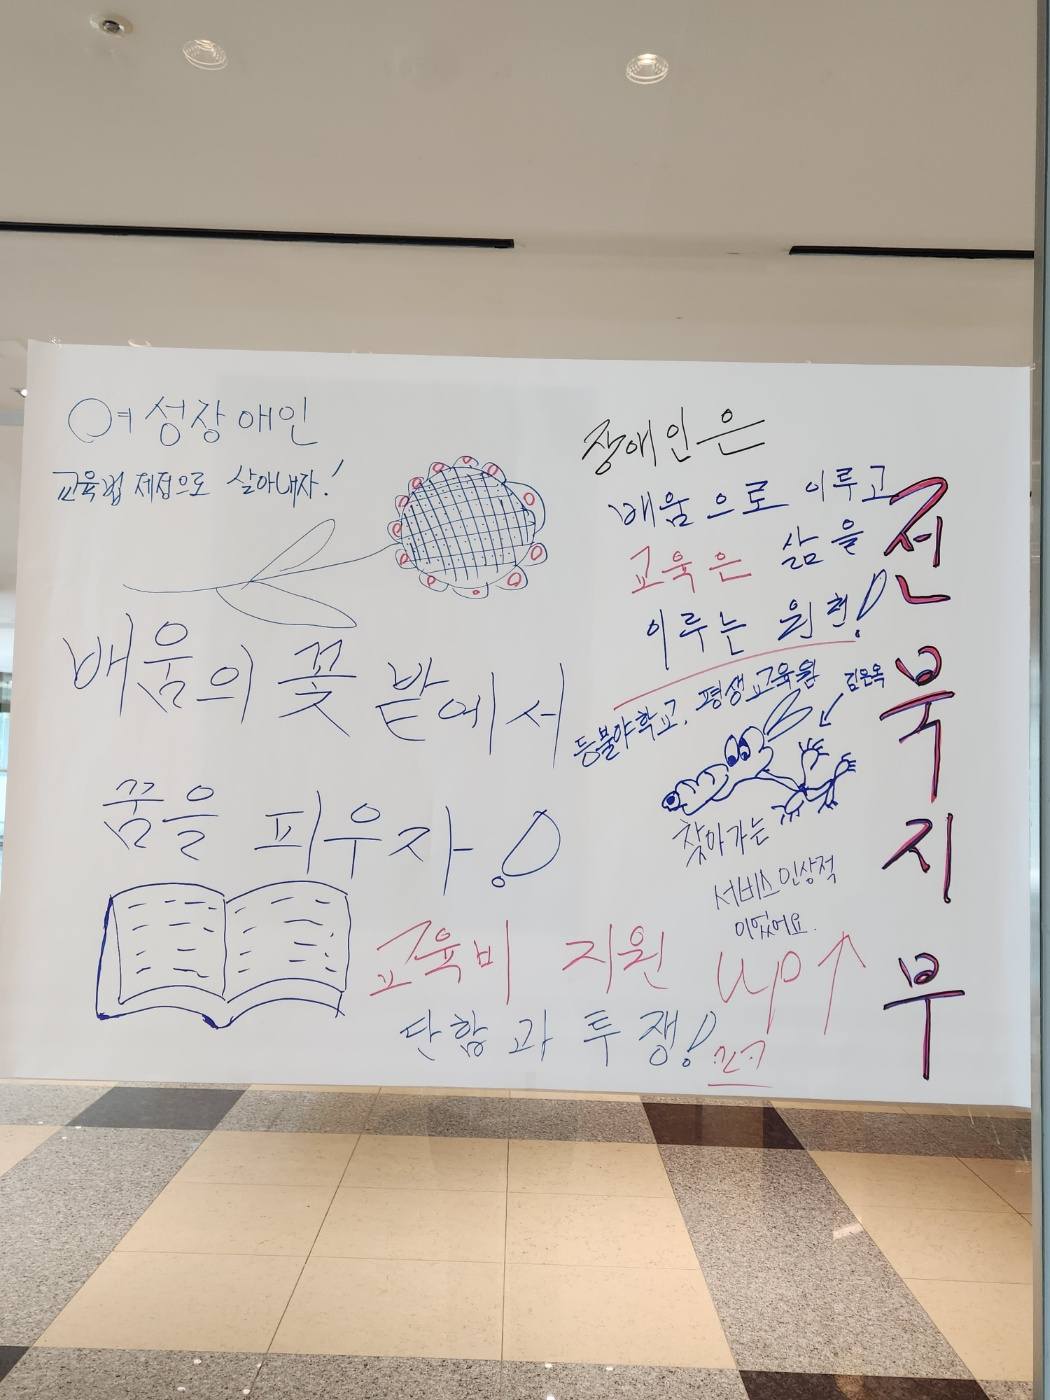 여성장애인
교육법 제정으로 살아내자!
배움의 꽃 밭에서
꿈을 피우자!
장애인은
배움으로 이루고
교육은 삶을
이루는 원천!
등불야학교, 평생교육원
김은옥
찾아가는
서비스 인상적
이었어요.
교육비 지원 UP↑
단합과 투쟁!
전북지부